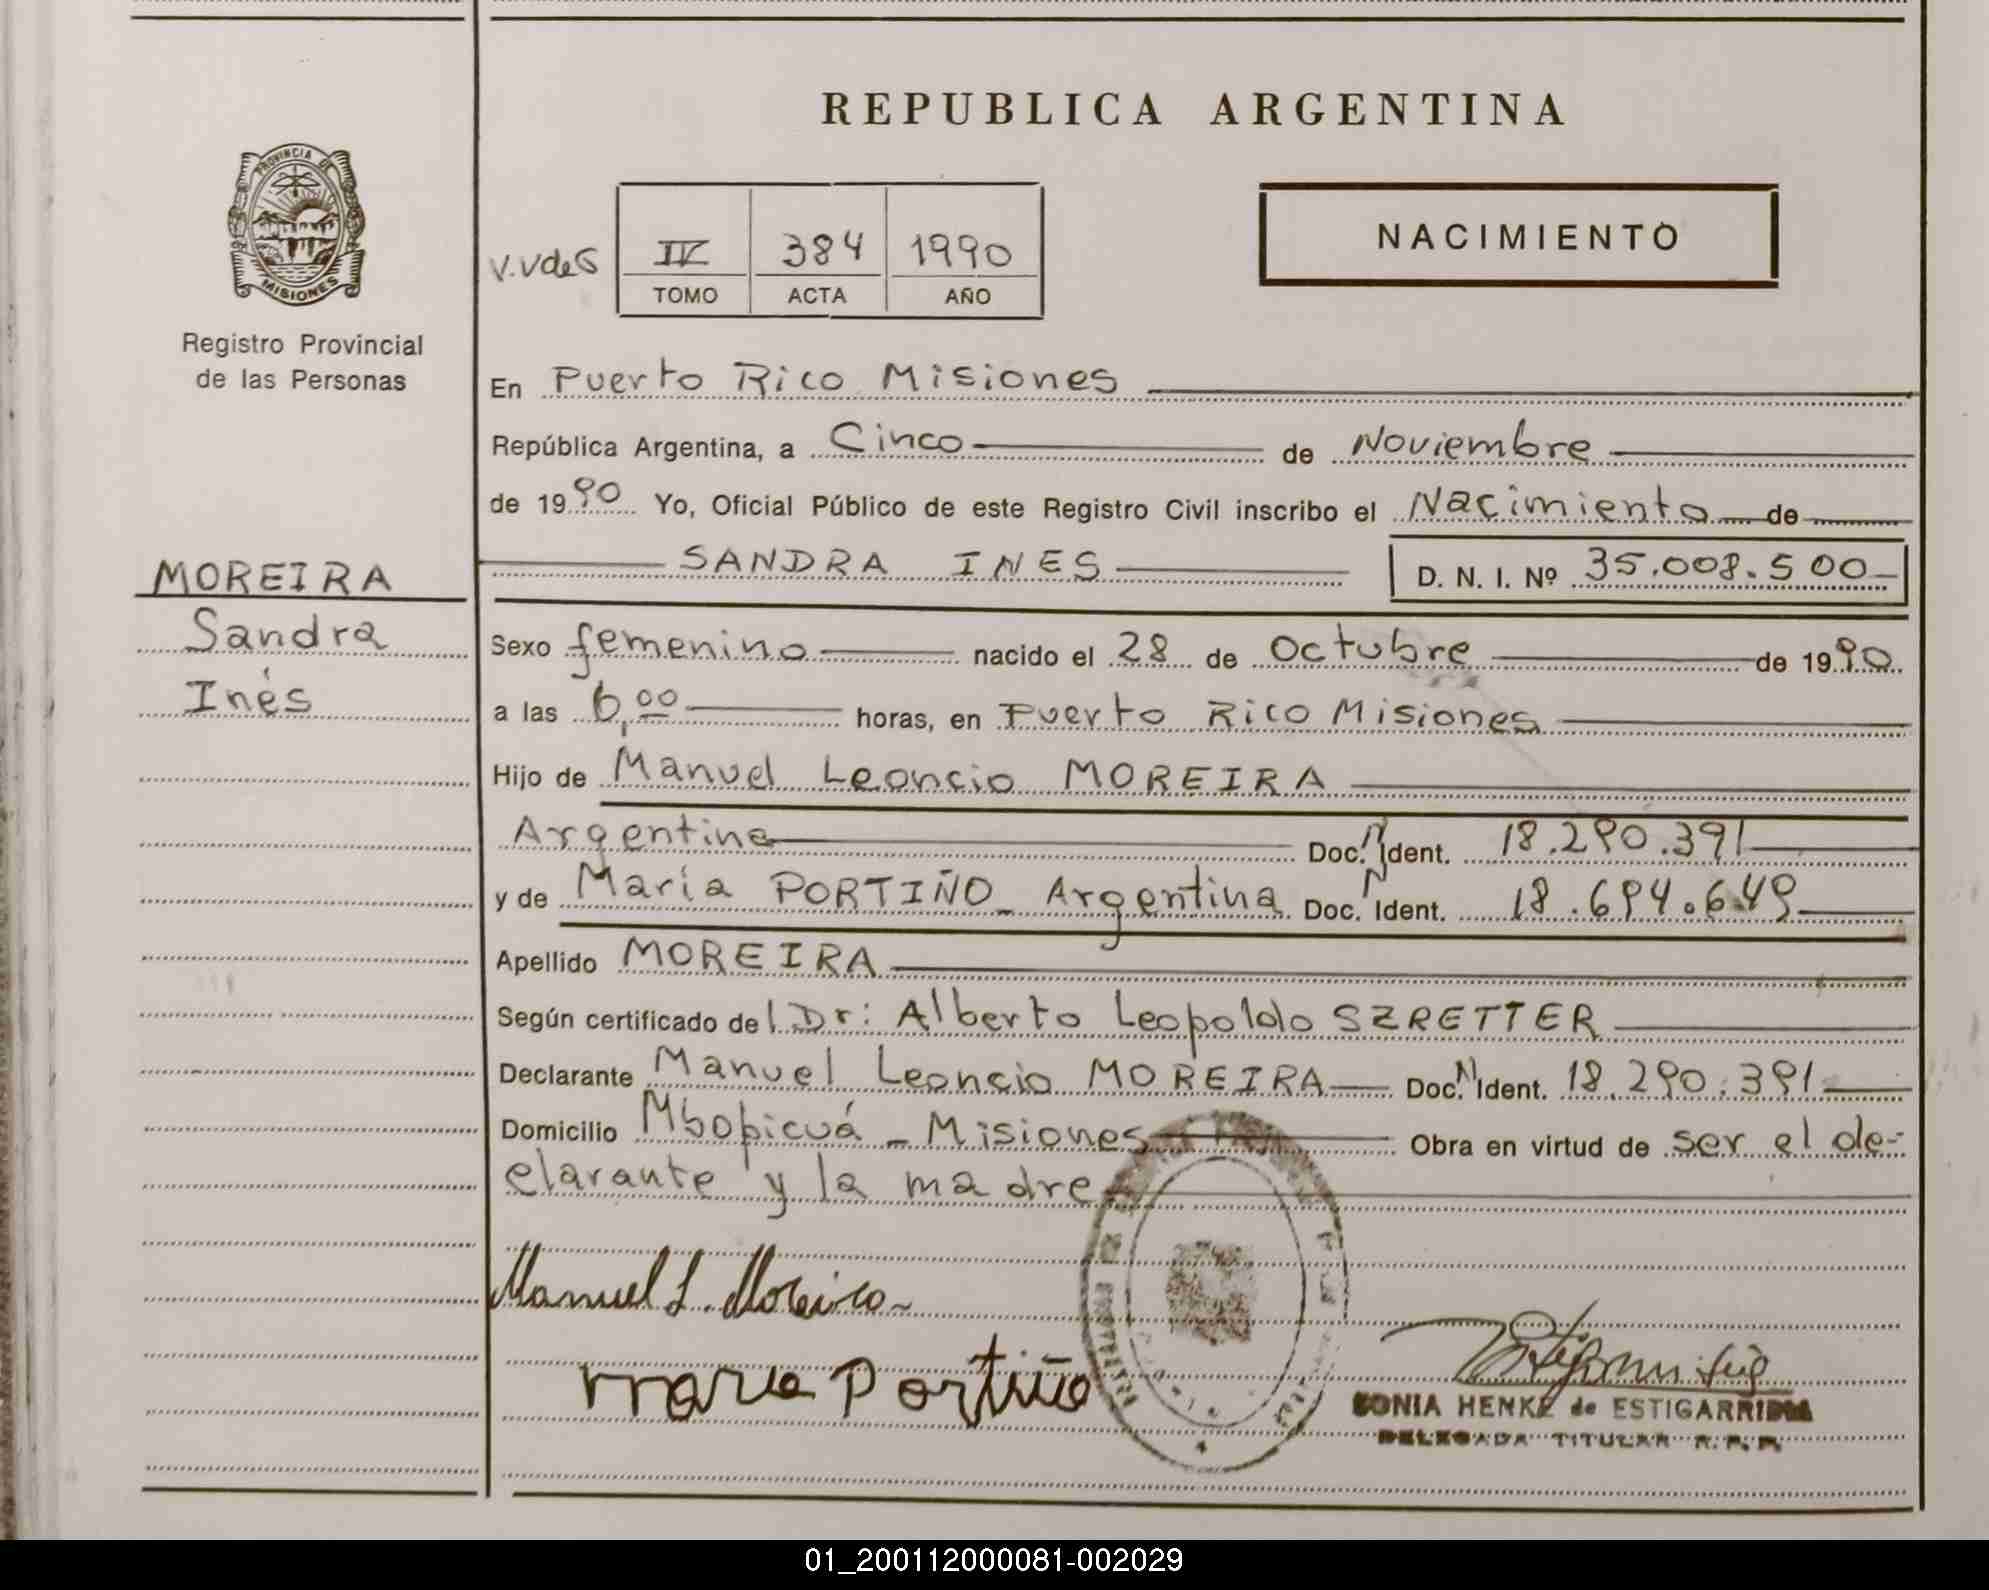 REPUBLICA ARGENTINA
PROVINCIA DE
MISIONES
Registro Provincial
de las Personas
NACIMIENTO
V.V de S
IV 384 1990
TOMO ACTA AÑO
En Puerto Rico Misiones
República Argentina, a Cinco de Noviembre
de 1990 Yo, Oficial Público de este Registro Civil inscribo el Nacimiento de
SANDRA INES D. N. I. Nº 35.008.500
MOREIRA
Sandra
Inés
Sexo femenino nacido el 28 de Octubre de 1990
a las 6,00 horas, en Puerto Rico Misiones
Hijo de Manuel Leoncio MOREIRA
Argentina Doc. N Ident. 18.290.391
y de María PORTIÑO - Argentina Doc. N Ident. 18.694.649
Apellido MOREIRA
Según certificado del Dr: Alberto Leopoldo SZRETTER
Declarante Manuel Leoncio MOREIRA Doc. N Ident. 18.290.391
Domicilio Mbopicuá - Misiones Obra en virtud de ser el de-
clarante y la madre
Manuel L. Moreira
Maria Portiño
SONIA HENKE de ESTIGARRIBIA
DELEGADA TITULAR R. P. P.
01_200112000081-002029